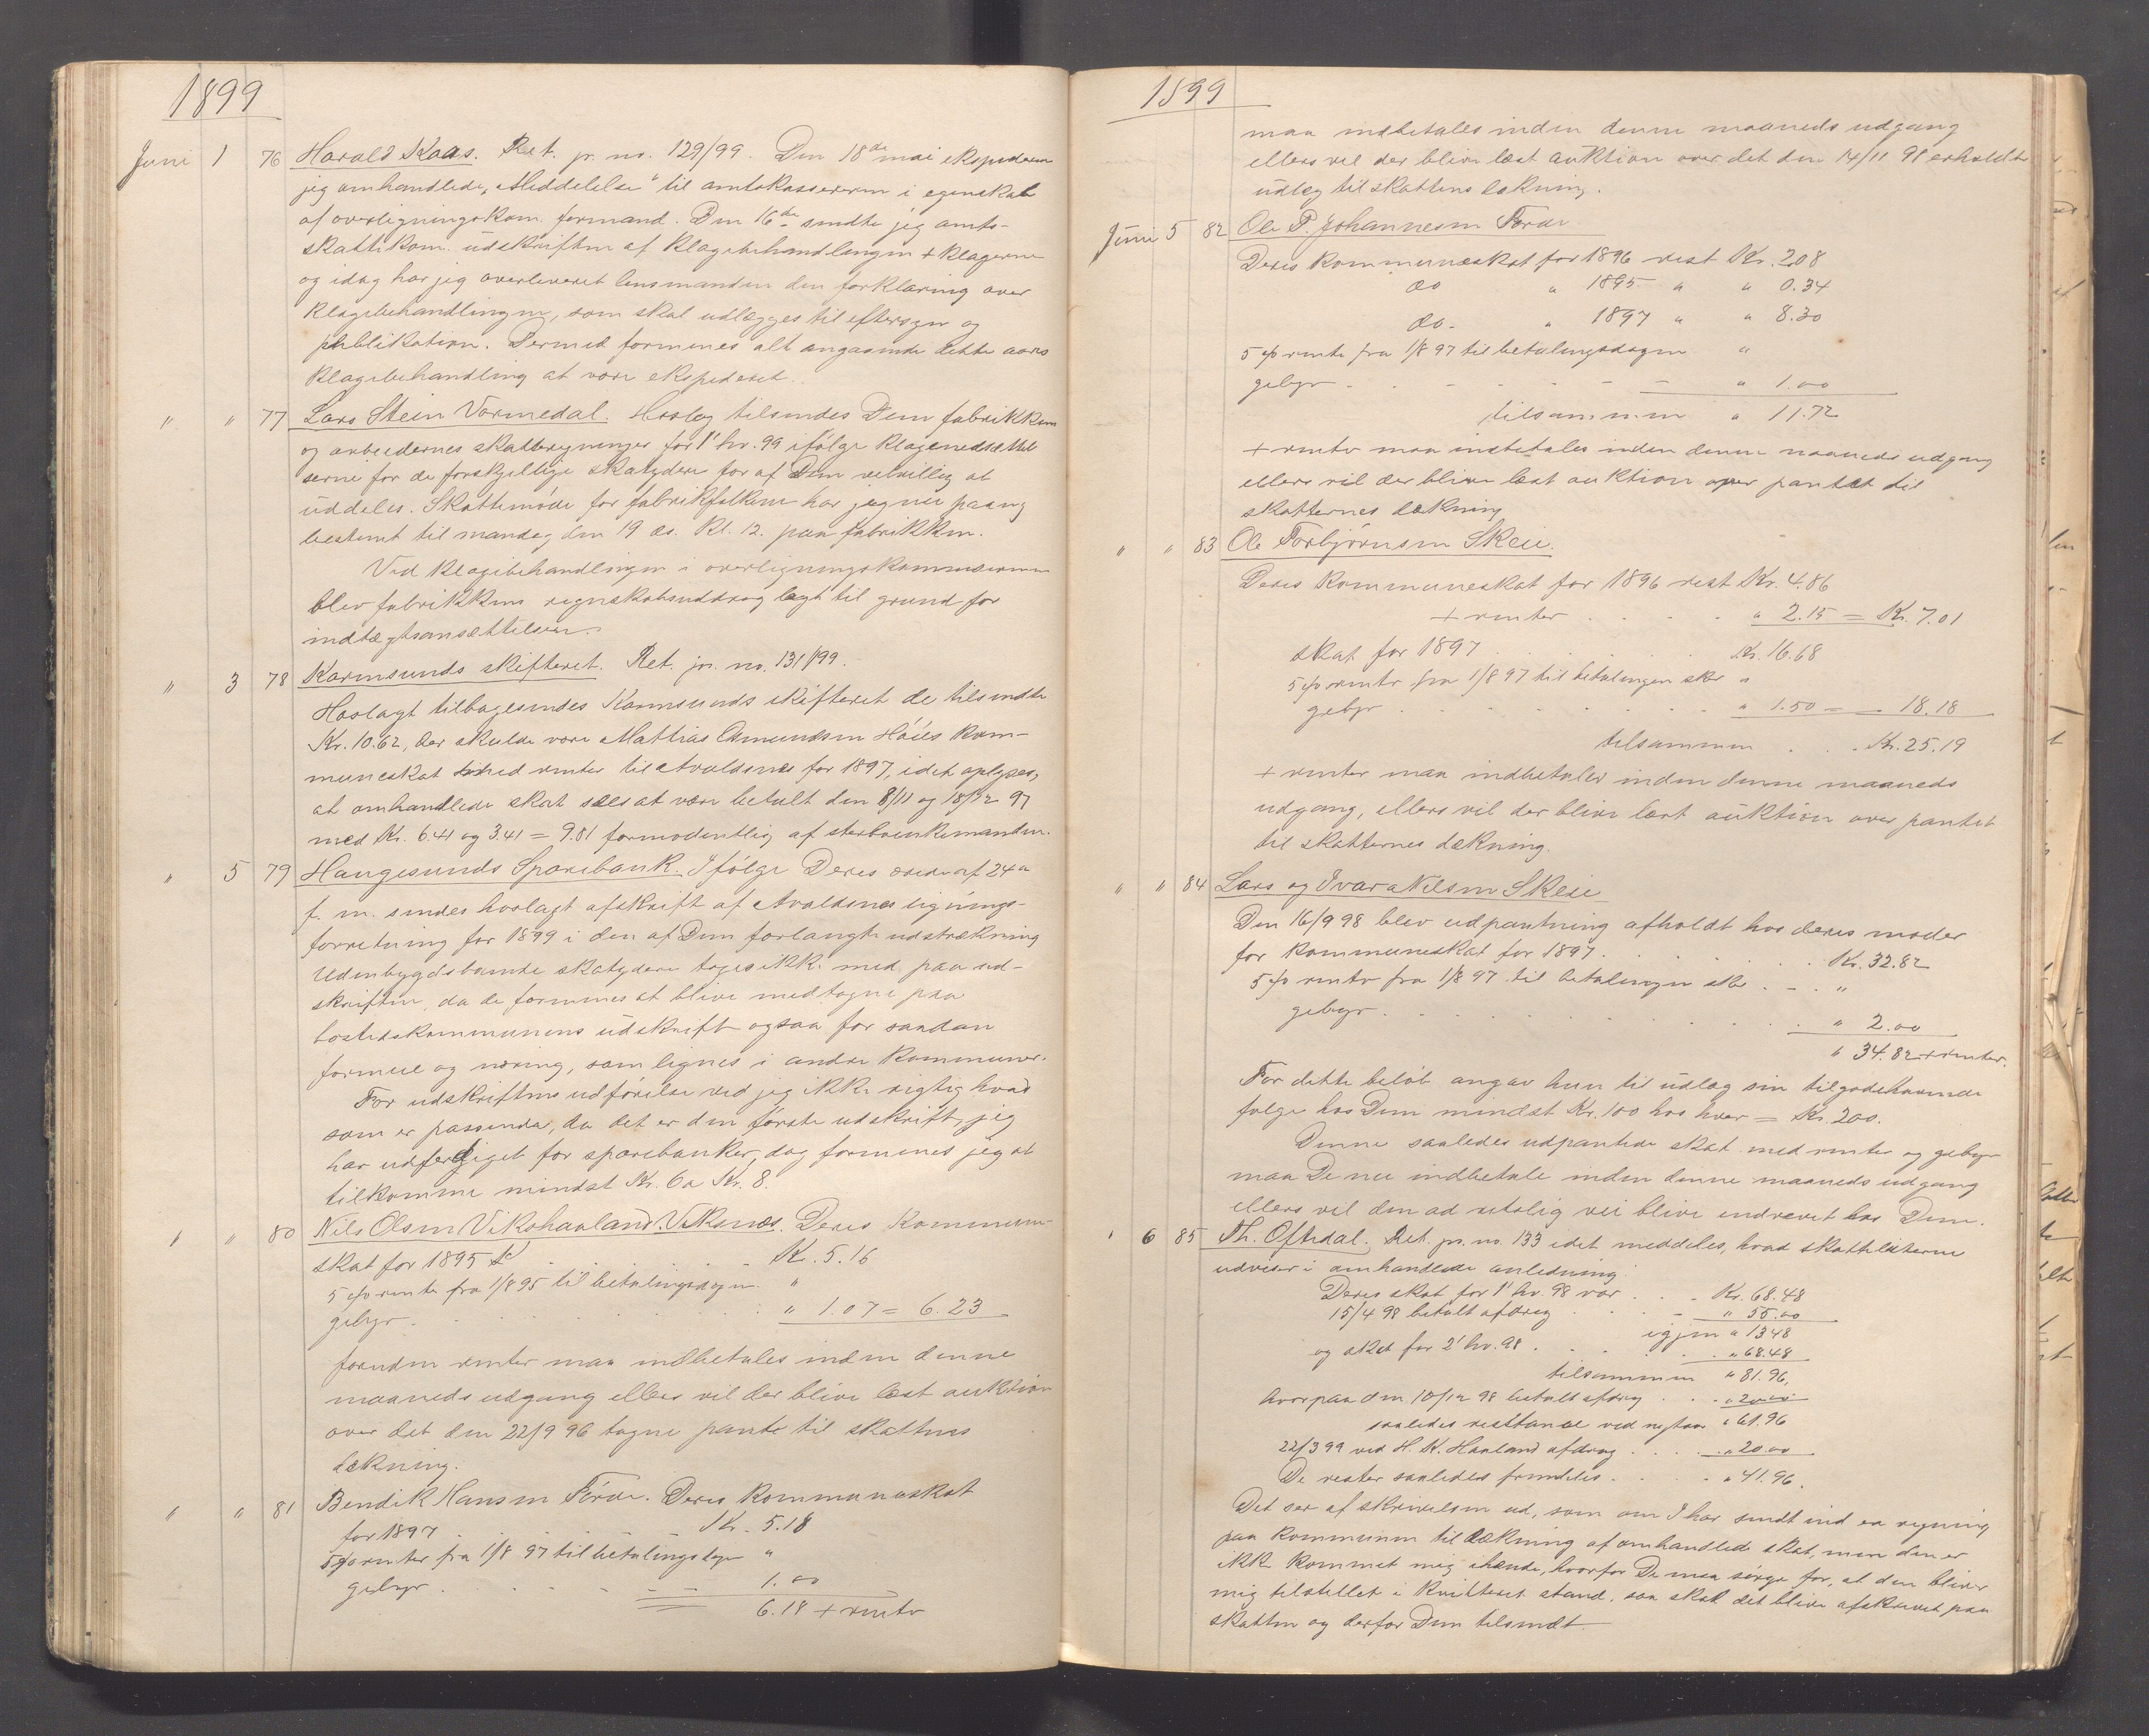 1899
Juni 1 76 Harald Kaas. Ret. jr. no. 129/99. Den 18de mai ekspederte
jeg omhandlede "Meddelelse" til amtskassereren i egenskab
af overligningskom. formand. Den 16de sendte jeg amts-
skattekom. udskriften af klagebehandlingen + klagerne
og idag har jeg overleveret lensmanden den forklaring over
klagebehandlingen, som skal udlægges til eftersyn og
publikation. Dermed formenes alt angaaende dette aars
klagebehandling at være ekspederet.
" " 77 Lars Stein Vormedal. Hoslag tilsendes Dem fabrikken
og arbeidernes skatteregninger for 1' hv. 99 ifølge klagenedsættel
serne for de forskjellige skatydere for af Dem velvillig at
uddeles. Skattemøde for fabrikfolkene har jeg nu paany
bestemt til mandag den 19 ds. Kl. 12. paa fabrikken.
Ved klagebehandlingen i overligningskommissionen
blev fabrikkens regnskabsuddrag lagt til grund for
indtægtsansættelsen.
" 3 78 Karmsunds skifteret. Ret. jr. no. 131/99.
Hoslagt tilbagesendes Karmsunds skifteret de tilsendte
Kr. 10.62, der skulde være Mattias Amundsen Høies kom-
muneskat med renter til Avaldsnes for 1897, idet oplyses,
at omhandlede skat sees at være betalt den 8/11 og 18/12 97
med Kr. 6.41 og 3.41 = 9.81 formodentlig af sterboenkemanden.
" 5 79 Haugesunds Sparebank. Ifølge Deres ordre af 24de
f. m. sendes hoslagt afskrift af Avaldsnes lignings-
forretning for 1899 i den af Dem forlangte udstrækning
Udenbygdsboende skatydere tages ikke med paa ud-
skriften, da de formenes at blive medtagne paa
bostedskommunens udskrift ogsaa for saadan
formue og næring, som lignes i andre kommuner.
For udskriftens udførelse ved jeg ikke rigtig hvad
som er passende, da det er den første udskrift, jeg
har udferdiget for sparebanker, dog formenes jeg at
tilkomme mindst Kr. 6 a Kr. 8.
" " 80 Nils Olsen Vikshaaland Veknes. Deres kommune-
skat for 1895 Kr. 5.16
5 % rente fra 1/8 95 til betalingsdagen "
gebyr " 1.07 = 6.23
foruden renter maa indbetales inden denne
maaneds udgang ellers vil der blive læst auktion
over det den 22/9 96 tagne pante til skattens
dækning.
" " 81 Bendik Hansen Førde. Deres kommuneskat
for 1897 Kr. 5.18
5 % renter fra 1/8 97 til betalingsdagen "
gebyr 1.00
6.18 + rente
1899
maa indbetales inden denne maaneds udgang
ellers vil der blive læst auktion over det den 14/11 98 erholdte
udlæg til skattens dækning.
Juni 5 82 Ole P. Johannesen Førde
Deres kommuneskat for 1896 rest Kr. 2.08
do " 1895 " " 0.34
do " 1897 " " 8.30
5 % rente fra 1/8 97 til betalingsdagen "
gebyr " 1.00
tilsammen " 11.72
+ renter maa indbetales inden denne maaneds udgang
ellers vil der blive læst auktion over pantet til
skatternes dækning
" " 83 Ole Torbjørnsen Skeie.
Deres kommuneskat for 1896 rest Kr. 4.86
+ renter " 2.15 = Kr. 7.01
skat for 1897 Kr. 16.68
5 % rente fra 1/8 97 til betalingen sker "
gebyr " 1.50 = " 18.18
tilsammen Kr. 25.19
+ renter maa indbetales inden denne maaneds
udgang, ellers vil der blive læst auktion over pantet
til skatternes dækning.
" " 84 Lars og Ivara Nilsen Skeie
Den 16/9 98 blev udpantning afholdt hos deres moder
for kommuneskat for 1897 Kr. 32.82
5 % rente fra 1/8 97 til betalingen sker "
gebyr " 2.00
" 34.82 + renter.
For dette beløb angav hun til udlæg sin tilgodehavende
følge hos Dem mindst Kr. 100 hos hver = Kr. 200.
Denne saaledes udpantede skat med renter og gebyr
maa De nu indbetale inden denne maaneds udgang
ellers vil den ad retslig vei blive inddrevet hos Dem.
" 6 85 Th. Oftedal. Ret. jr. no. 133 idet meddeles, hvad skattelisterne
udviser i omhandlede anledning:
Deres skat for 1' hv. 98 var Kr. 68.48
15/4 98 betalt afdrag " 55.00
igjen " 13.48
og skat for 2' hv. 98 " 68.48
tilsammen " 81.96,
hvorpaa den 10/12 98 betalt afdrag " 20.00
saaledes resttance ved nytaar " 61.96
22/3 99 ved H. K. Haaland afdrag " 20.00
De rester saaledes fremdeles " 41.96.
Det ser af skrivelsen ud, som om I har sendt ind en regning
paa kommunen til dækning af omhandlede skat, men den er
ikke kommet mig ihænde, hvorfor De maa sørge for, at den bliver
mig tilstillet i kvitteret stand, saa skal det blive afskrevet paa
skatten og derfor Dem tilsendt.